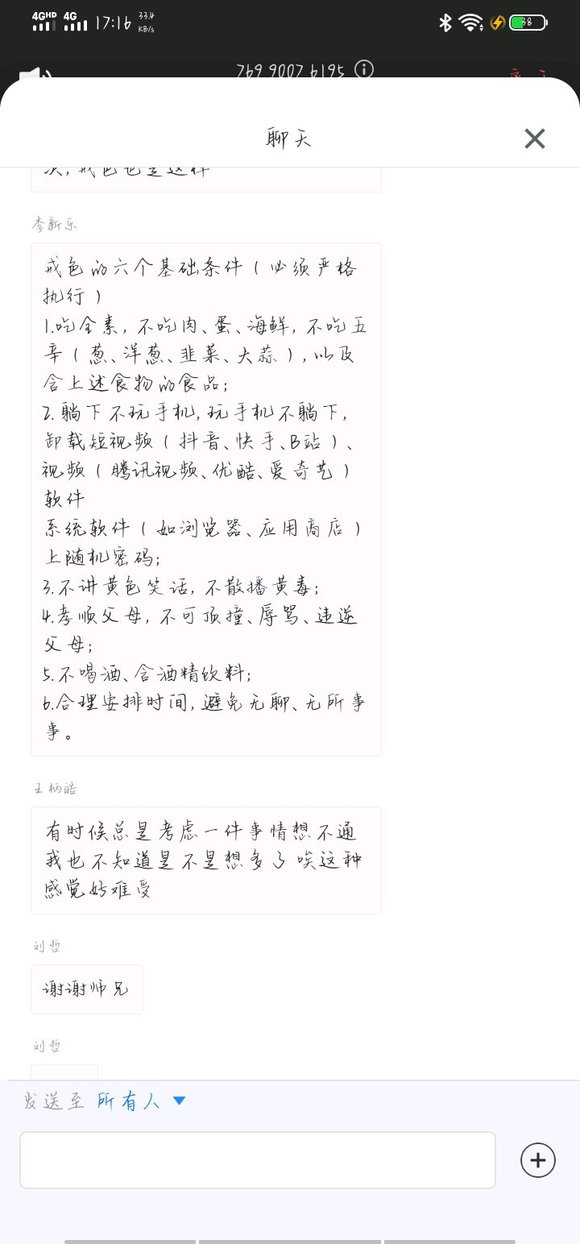 4GHD 4G 17:16 33.4 KB/s 38
769 9007 6195
聊天
次,戒色也是这样
李新乐
戒色的六个基础条件(必须严格
执行)
1.吃全素,不吃肉、蛋、海鲜,不吃五
辛(葱、洋葱、韭菜、大蒜),以及
含上述食物的食品;
2.躺下不玩手机,玩手机不躺下,
卸载短视频(抖音、快手、B站)、
视频(腾讯视频、优酷、爱奇艺)
软件
系统软件(如浏览器、应用商店)
上随机密码;
3.不讲黄色笑话,不散播黄毒;
4.孝顺父母,不可顶撞、辱骂、违逆
父母;
5.不喝酒、含酒精饮料;
6.合理安排时间,避免无聊、无所事
事。
王炳皓
有时候总是考虑一件事情想不通
我也不知道是不是想多了 唉这种
感觉好难受
刘哲
谢谢师兄
刘哲
发送至 所有人